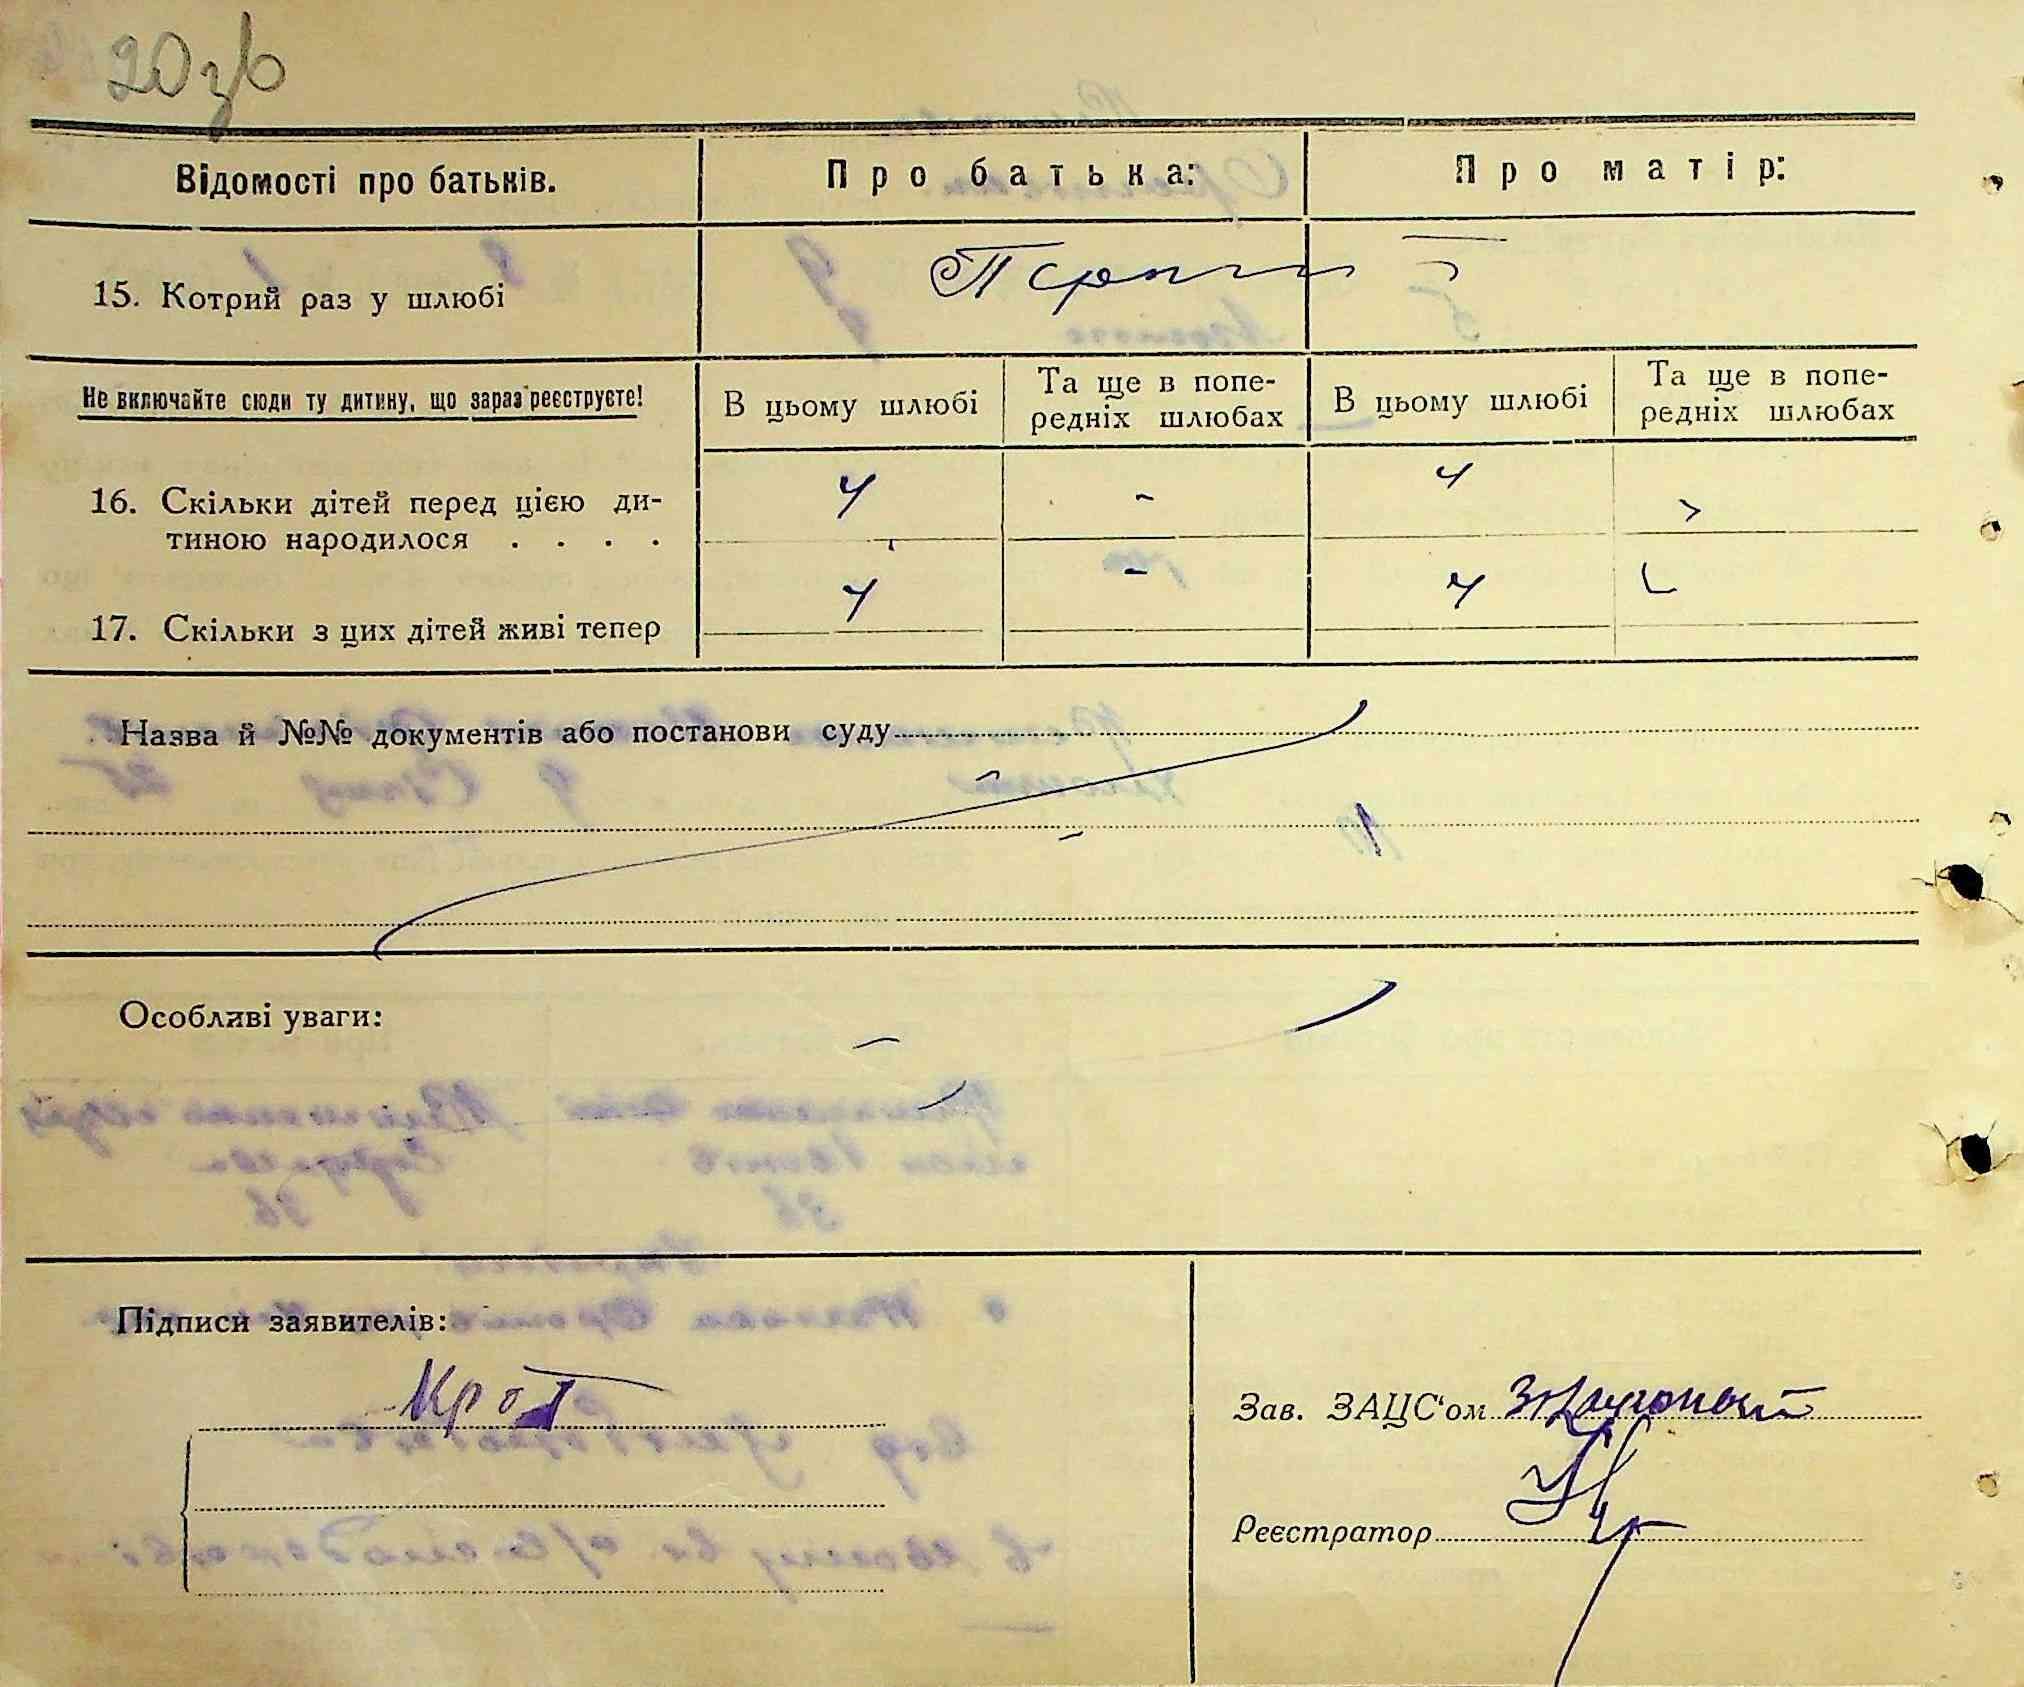 20 зв
Відомості про батьків.
Про батька:
Про матір:
15. Котрий раз у шлюбі
Перший
Не включайте сюди ту дитину, що зараз реєструєте!
В цьому шлюбі
Та ще в попе-
редніх шлюбах
В цьому шлюбі
Та ще в попе-
редніх шлюбах
16. Скільки дітей перед цією ди-
тиною народилося . . . .
4 - 4
17. Скільки з цих дітей живі тепер
4 - 4
Назва й №№ документів або постанови суду
Особливі уваги:
Підписи заявителів:
Крот
Зав. ЗАЦС'ом
Реєстратор